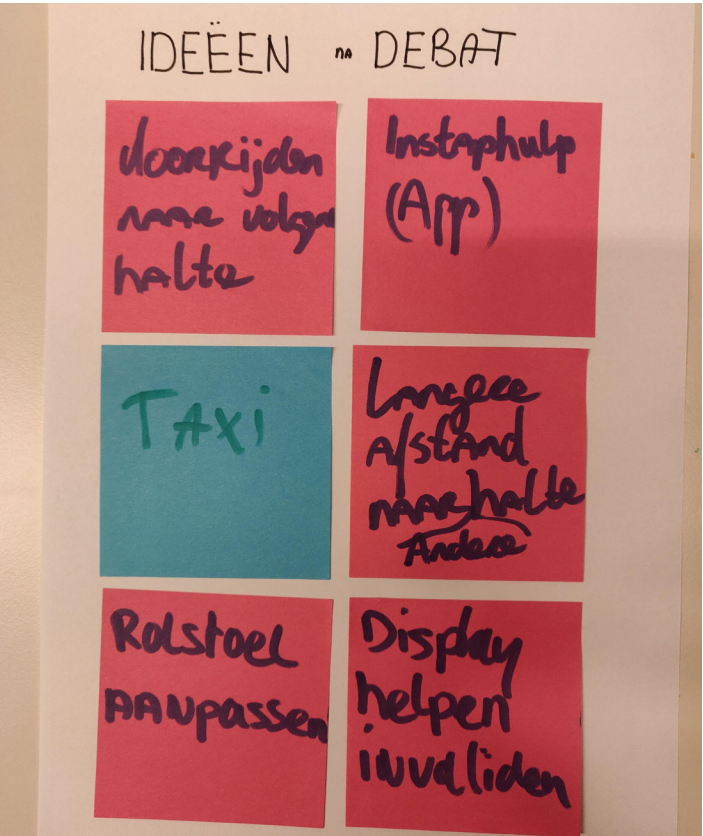 IDEËEN NA DEBAT
doorrijden
naar volgen
halte
Instaphulp
(App)
TAXi
Langere
Afstand
naar halte
Andere
Rolstoel
AANpassen
Display
helpen
invaliden